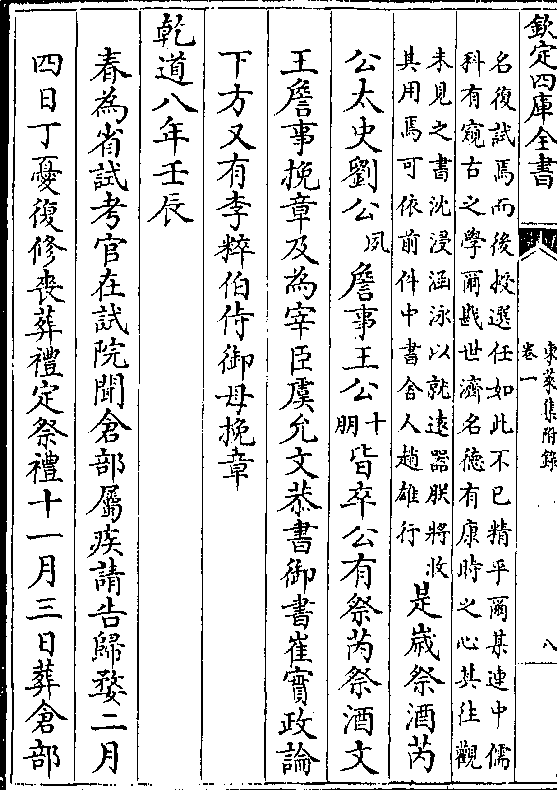 欽定四庫全書
東萊集附錄
卷一
八
名復試焉而後授選任如此不已精乎爾某連中儒
科有窺古之學爾戡世濟名德有康時之心其往觀
未見之書沈浸涵泳以就遠器朕將收
其用焉可依前件中書舍人趙雄行
是嵗祭酒芮
公太史劉公
夙
詹事王公
十
朋
皆卒公有祭芮祭酒文
王詹事挽章及為宰臣虞允文恭書御書崔寔政論
下方又有李粹伯侍御母挽章
乾道八年壬辰
春為省試考官在試院聞倉部屬疾請告歸婺二月
四日丁憂復修喪葬禮定祭禮十一月三日葬倉部